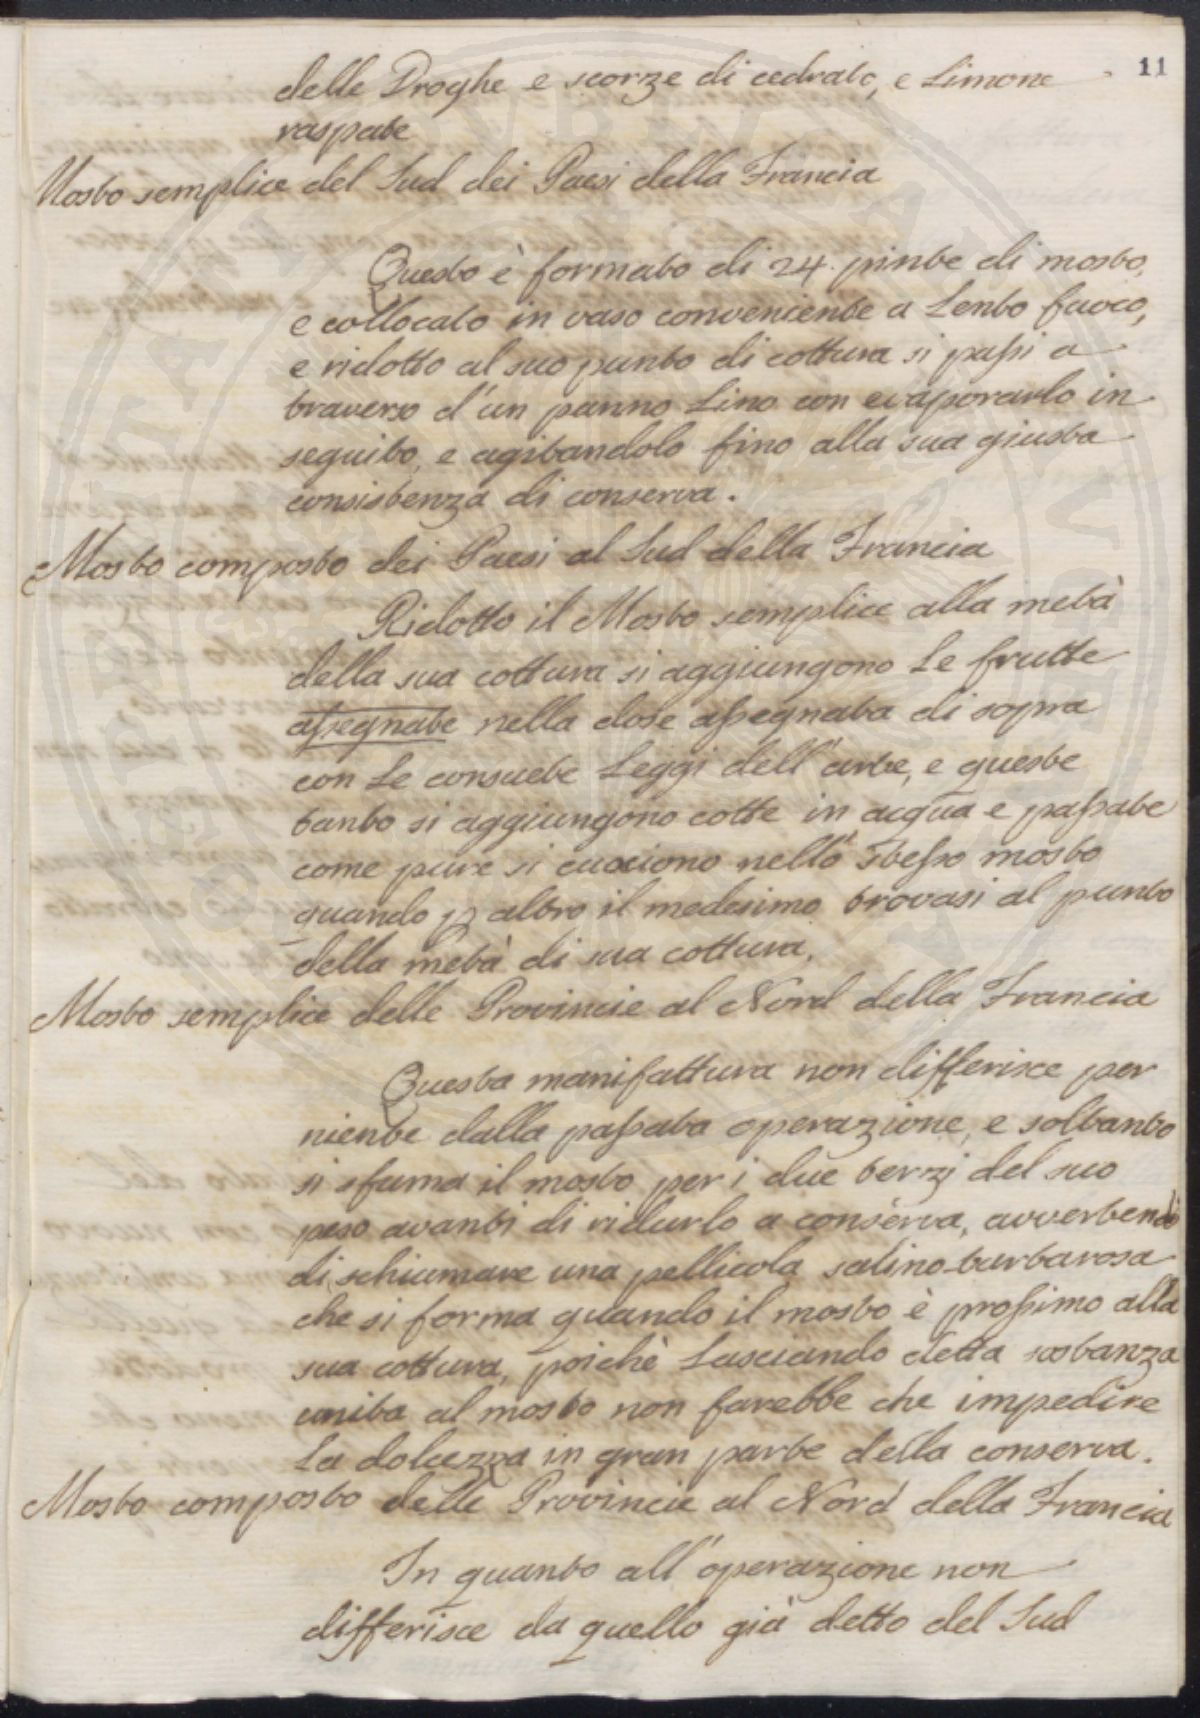 11
delle Droghe e scorze di cedrato, e Limone
raspate
Mosto semplice del Sud dei Paesi della Francia
Questo è formato di 24. pinte di mosto,
e collocato in vaso conveniente a Lento fuoco,
e ridotto al suo punto di cottura si paſsi a
traverso d'un panno Lino con evaporarlo in
seguito, e agitandolo fino alla sua giusta
consistenza di conserva.
Mosto composto dei Paesi al Sud della Francia
Ridotto il Mosto semplice alla metà
della sua cottura si aggiungono Le frutte
aſsegnate nella dose aſsegnata di sopra
con Le consuete Leggi dell'arte, e queste
tanto si aggiungono cotte in acqua e paſsate
come pure si cuociono nello steſso mosto
quando p altro il medesimo trovasi al punto
della metà di sua cottura.
Mosto semplice delle Provincie al Nord della Francia
Questa manifattura non differisce per
niente dalla paſsata operazione, e soltanto
si sfuma il mosto per i due terzj del suo
peso avanti di ridurlo a conserva, avvertendo
di schiumare una pellicola salino-tartarosa
che si forma quando il mosto è proſsimo alla
sua cottura, poichè Lasciando detta sostanza
unita al mosto non farebbe che impedire
La dolcezza in gran parte della conserva.
Mosto composto delle Provincie al Nord della Francia
In quanto all'operazione non
differisce da quello già detto del Sud